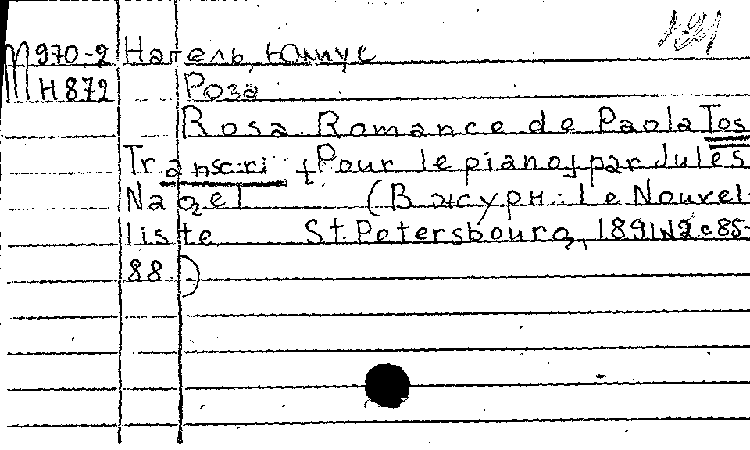 191
М970-2 Нагель, Юлиус
Н872 Роза
Rosa Romance de Paola Tos
Transcri t Pour le piano par Jules
Nagel (В журн: Le Nouvel
liste St. Petersbourg, 1891 N2 с 85-
88)